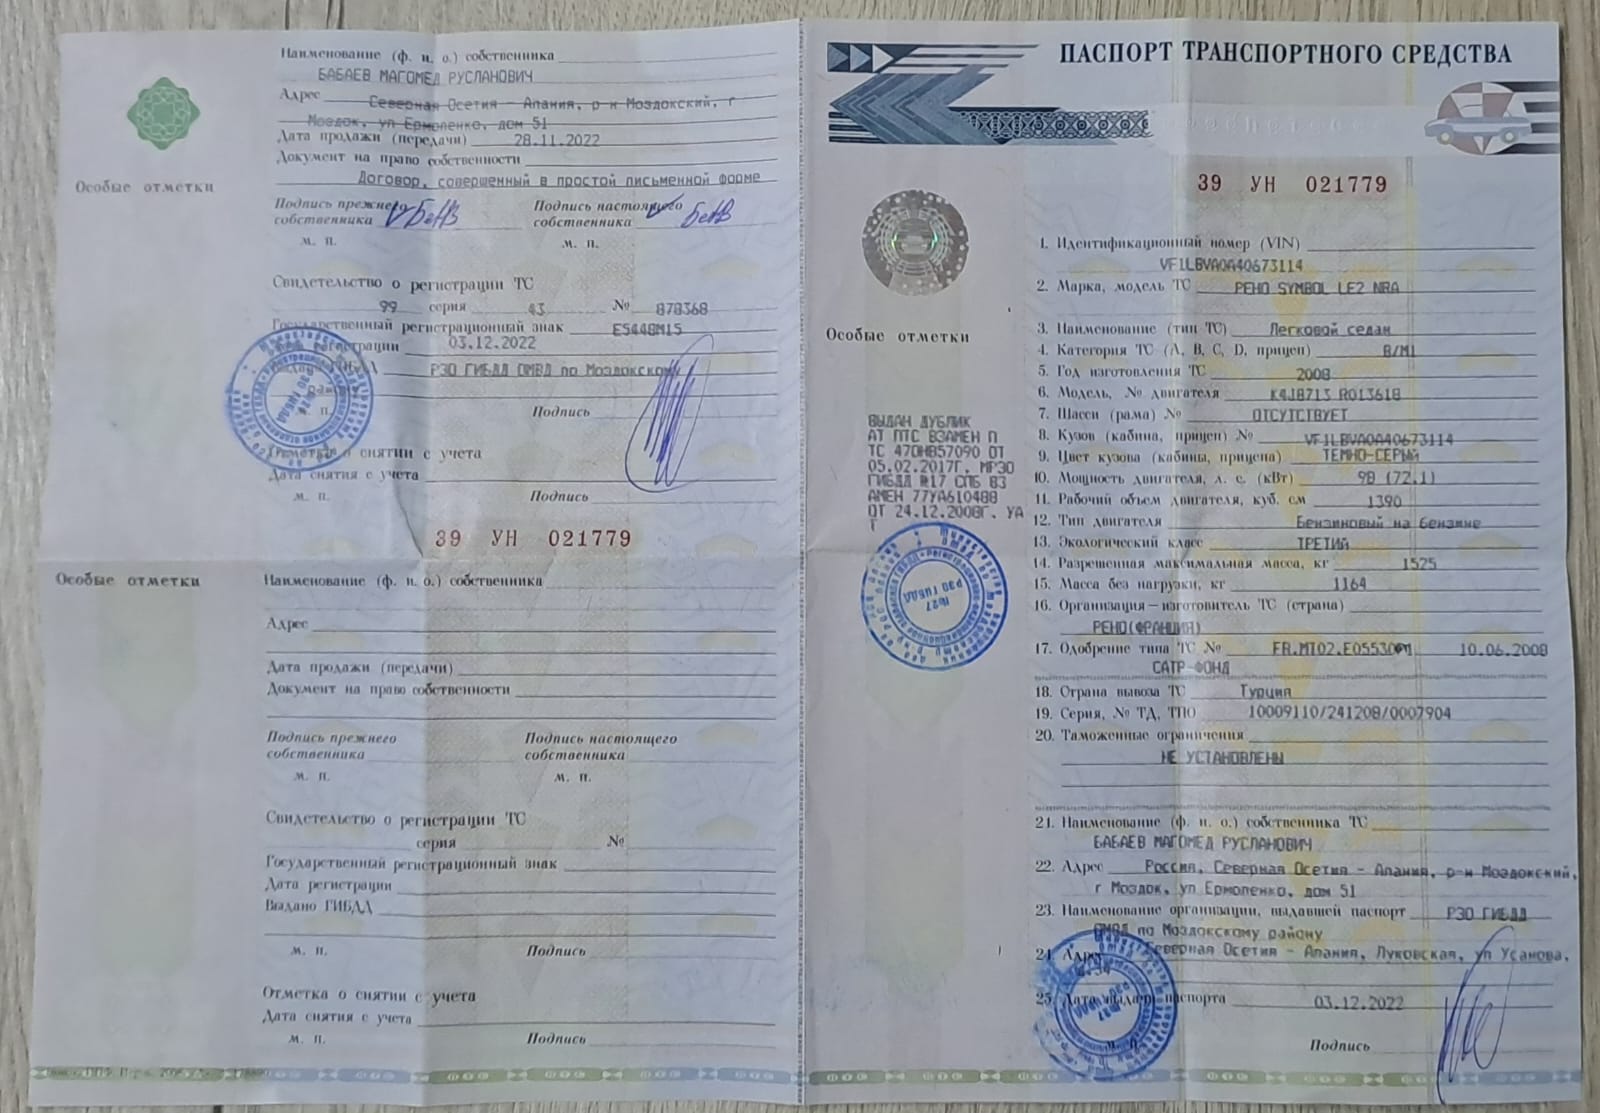 Наименование (ф. и. о.) собственника
БАБАЕВ МАГОМЕД РУСЛАНОВИЧ
Адрес Северная Осетия - Алания, р-н Моздокский, г
Моздок, ул Ермоленко, дом 51
Дата продажи (передачи) 28.11.2022
Документ на право собственности
Договор, совершенный в простой письменной форме
Особые отметки
Подпись прежнего собственника
Подпись настоящего собственника
м. п.
м. п.
Свидетельство о регистрации ТС
99 серия 43 № 878368
Государственный регистрационный знак Е544ВМ15
регистрации 03.12.2022
РЭО ГИБДД ОМВД по Моздокскому
Подпись
Отметка о снятии с учета
Дата снятия с учета
м. п.
Подпись
39 УН 021779
Особые отметки
Наименование (ф. и. о.) собственника
Адрес
Дата продажи (передачи)
Документ на право собственности
Подпись прежнего собственника
Подпись настоящего собственника
м. п.
м. п.
Свидетельство о регистрации ТС
серия №
Государственный регистрационный знак
Дата регистрации
Выдано ГИБДД
м. п.
Подпись
Отметка о снятии с учета
Дата снятия с учета
м. п.
Подпись
ПАСПОРТ ТРАНСПОРТНОГО СРЕДСТВА
39 УН 021779
Особые отметки
ВЫДАН ДУБЛИК
АТ ПТС ВЗАМЕН П
ТС 47ОН857090 ОТ
05.02.2017Г. МРЭО
ГИБДД №17 СПБ ВЗ
АМЕН 77УА610488
ОТ 24.12.2008Г. УА
Т
1. Идентификационный номер (VIN)
VF1LBVA0A40673114
2. Марка, модель ТС РЕНО SYMBOL LE2 NRA
3. Наименование (тип ТС) Легковой седан
4. Категория ТС (А, В, С, D, прицеп) В/М1
5. Год изготовления ТС 2008
6. Модель, № двигателя K4JB713 R013618
7. Шасси (рама) № ОТСУТСТВУЕТ
8. Кузов (кабина, прицеп) № VF1LBVA0A40673114
9. Цвет кузова (кабины, прицепа) ТЕМНО-СЕРЫЙ
10. Мощность двигателя, л. с. (кВт) 98 (72.1)
11. Рабочий объем двигателя, куб. см 1390
12. Тип двигателя Бензиновый на бензине
13. Экологический класс ТРЕТИЙ
14. Разрешенная максимальная масса, кг 1525
15. Масса без нагрузки, кг 1164
16. Организация—изготовитель ТС (страна)
РЕНО(ФРАНЦИЯ)
17. Одобрение типа ТС № 10.06.2008
САТР-ФОНД
18. Страна вывоза ТС Турция
19. Серия, № ТД, ТПО 10009110/241208/0007904
20. Таможенные ограничения
НЕ УСТАНОВЛЕНЫ
21. Наименование (ф. и. о.) собственника ТС
БАБАЕВ МАГОМЕД РУСЛАНОВИЧ
22. Адрес Россия, Северная Осетия - Алания, р-н Моздокский,
г Моздок, ул Ермоленко, дом 51
23. Наименование организации, выдавшей паспорт РЭО ГИБДД
ОМВД по Моздокскому району
24. Адрес Северная Осетия - Алания, Луковская, ул Усанова,
25. Дата выдачи паспорта 03.12.2022
Подпись